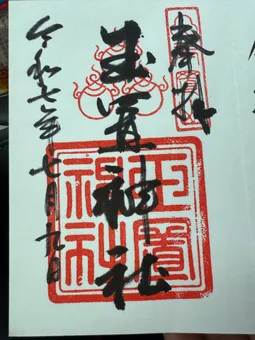 奉拝
玉置神社
令和七年七月九日
玉置
神社